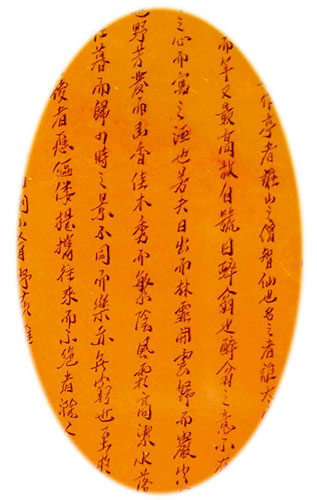 作亭者誰山之僧智仙也名之者誰太
而年又最高故自號曰醉翁也醉翁之意不在
之心而寓之酒也若夫日出而林霏開雲歸而巖穴
也野芳發而幽香佳木秀而繁陰風霜高潔水落
暮而歸四時之景不同而樂亦無窮也至於
後者應傴僂提攜往來而不絕者滁人
山肴野蔌雜